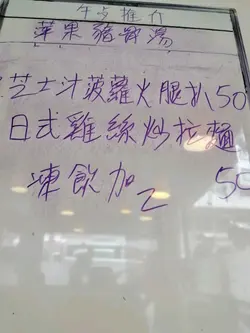 午点推介
蘋果豬𦟌湯
芝士汁菠蘿火腿扒50
日式雞絲炒拉麵
凍飲加2 50